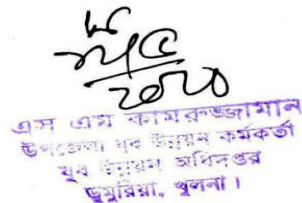 এস এম কামরুজ্জামান
উপজেলা যুব উন্নয়ন কর্মকর্তা
যুব উন্নয়ন অধিদপ্তর
ডুমুরিয়া, খুলনা।